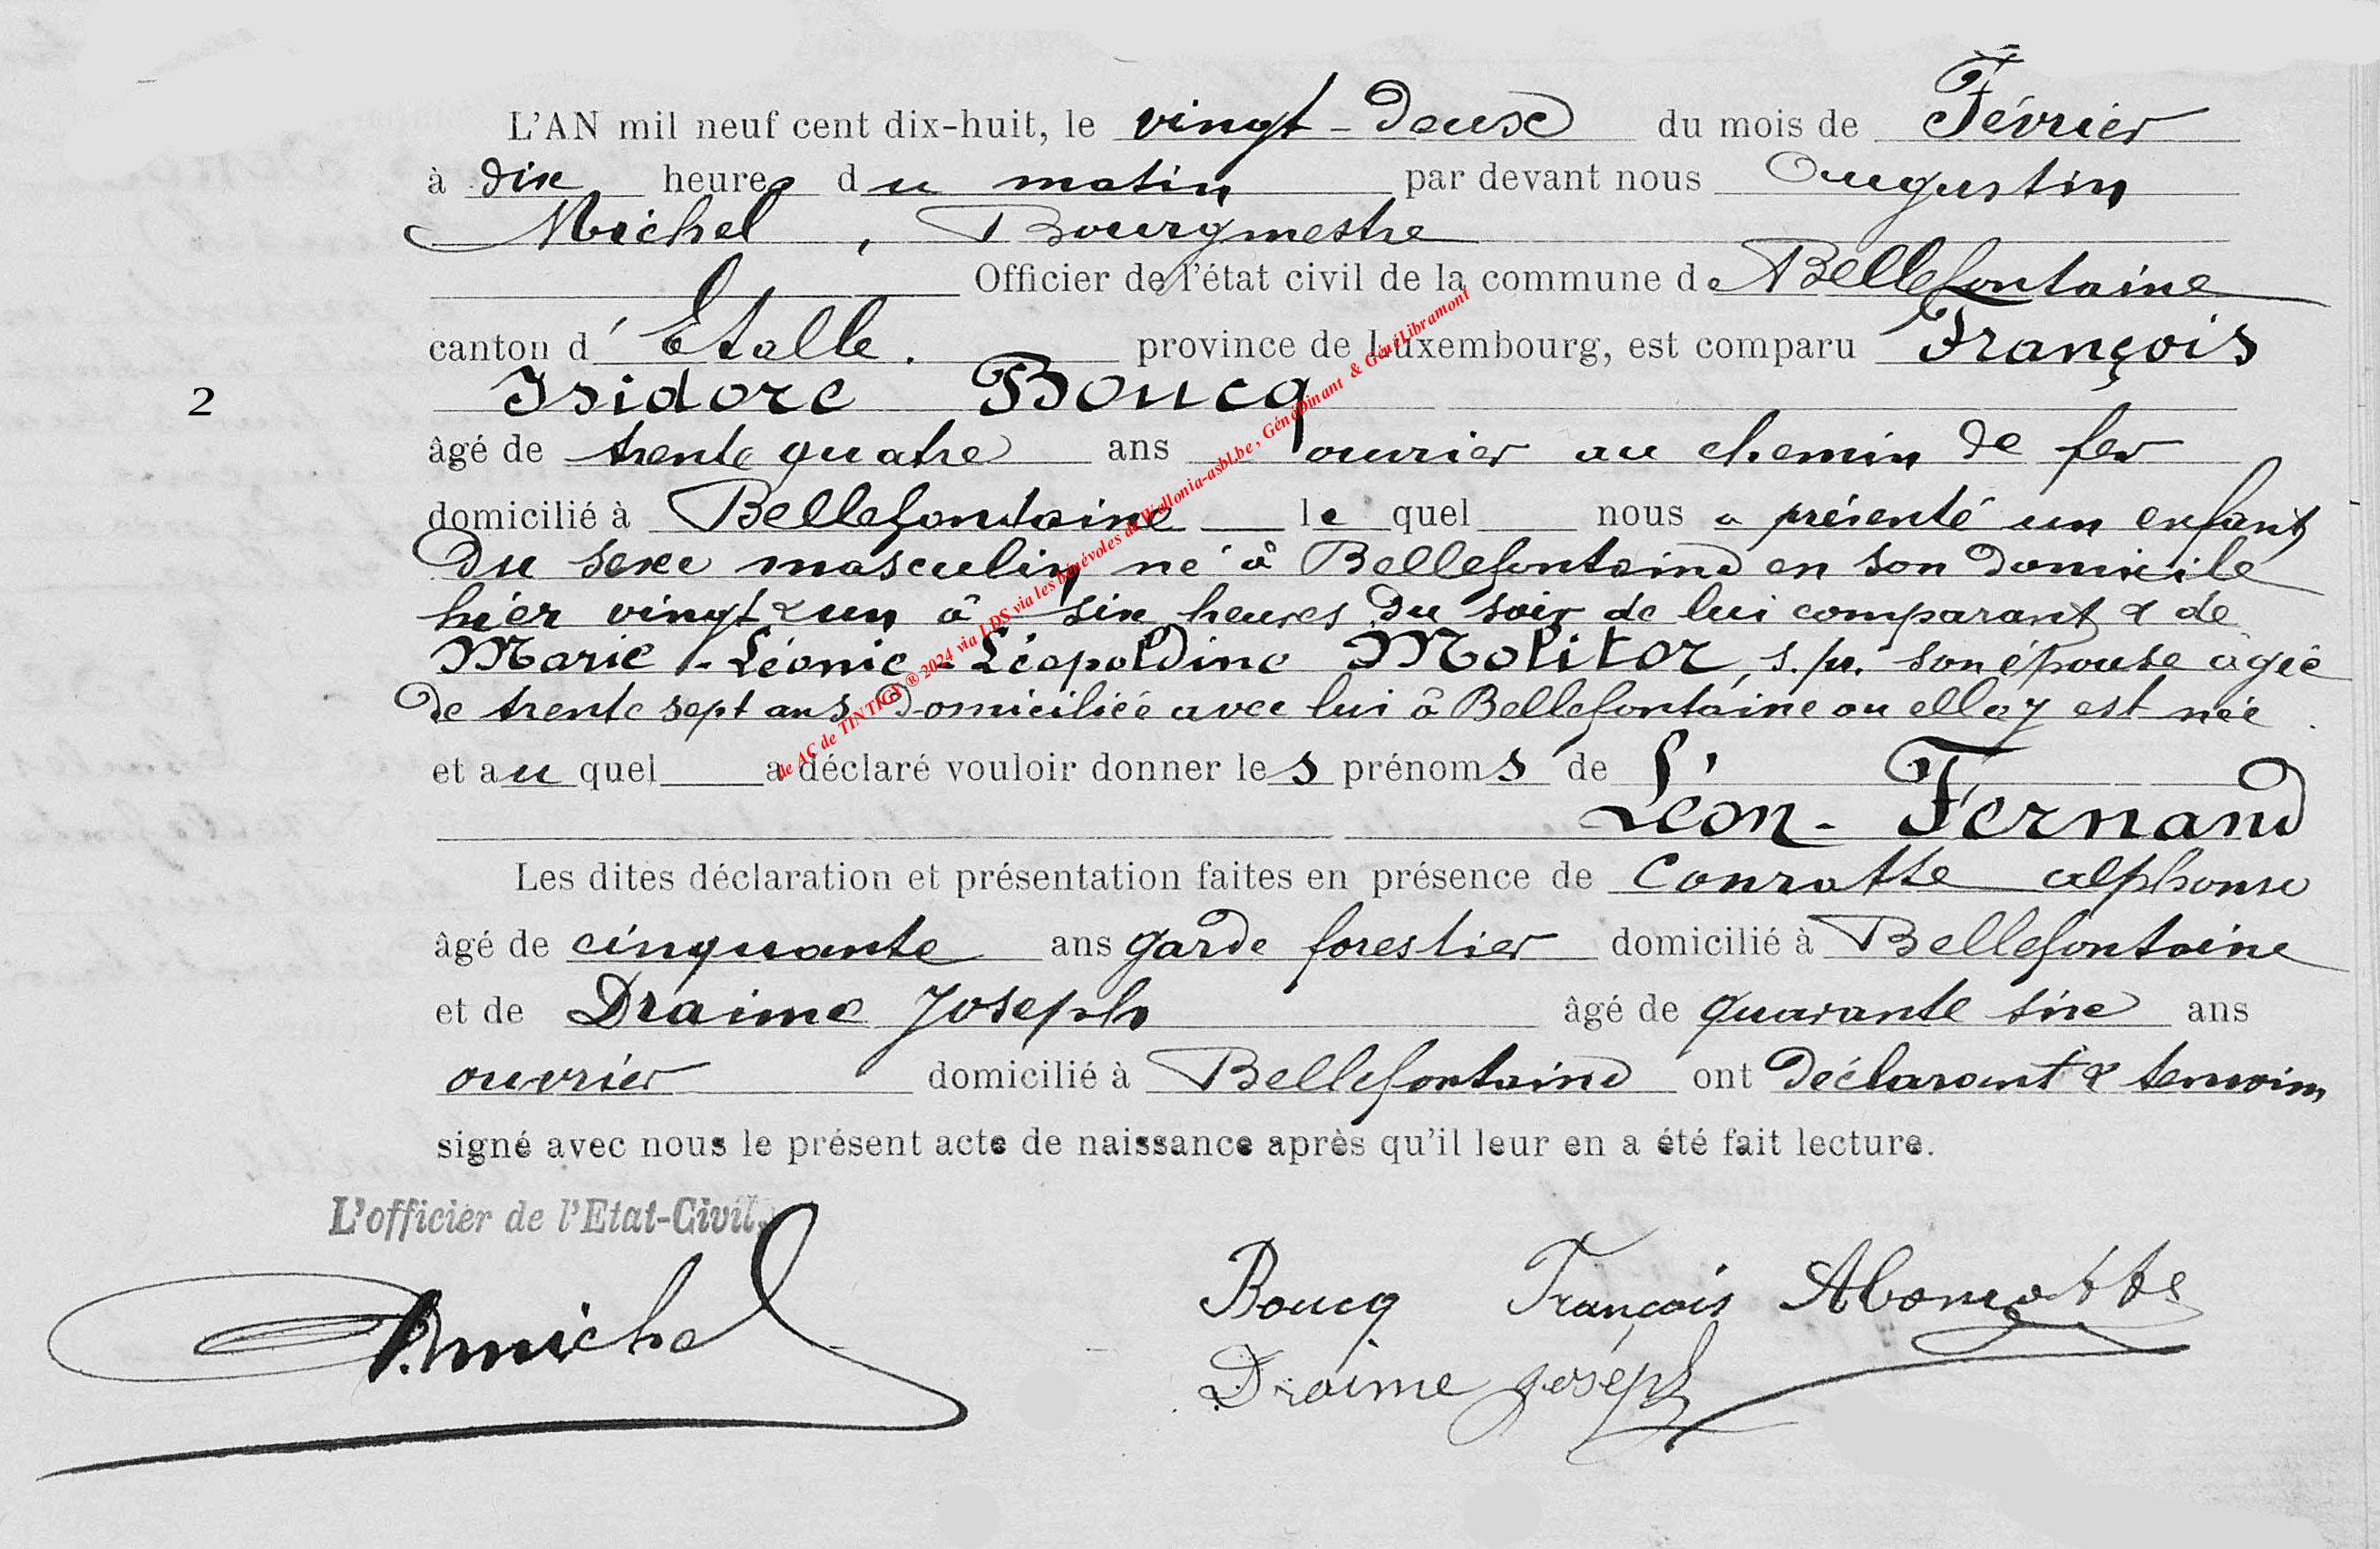 L'AN mil neuf cent dix-huit, le vingt-deux du mois de Février
à dix heures du matin par devant nous Augustin
Michel, Bourgmestre
Officier de l'état civil de la commune de Bellefontaine
canton d'Etalle. province de Luxembourg, est comparu François
2 Isidore Boucq
âgé de trente quatre ans ouvrier au chemin de fer
domicilié à Bellefontaine le quel nous a présenté un enfant
du sexe masculin né à Bellefontaine en son domicile
hier vingt & un à six heures du soir de lui comparant & de
Marie-Léonie-Léopoldine Molitor, s.pr. son épouse agée
de trente sept ans domiciliée avec lui à Bellefontaine ou elle y est née
et au quel a déclaré vouloir donner les prénoms de
Léon-Fernand
Les dites déclaration et présentation faites en présence de Conrotte alphonse
âgé de cinquante ans garde forestier domicilié à Bellefontaine
et de Draime Joseph âgé de quarante six ans
ouvrier domicilié à Bellefontaine ont déclarant & temoins
signé avec nous le présent acte de naissance après qu'il leur en a été fait lecture.
L'officier de l'Etat-Civil,
AMichel
Boucq François AConrotte
Draime Joseph
de AC de TINTIGY ® 2024 via LDS via les bénévoles de Wallonia-asbl.be, GénéDinant & GénéLibramont